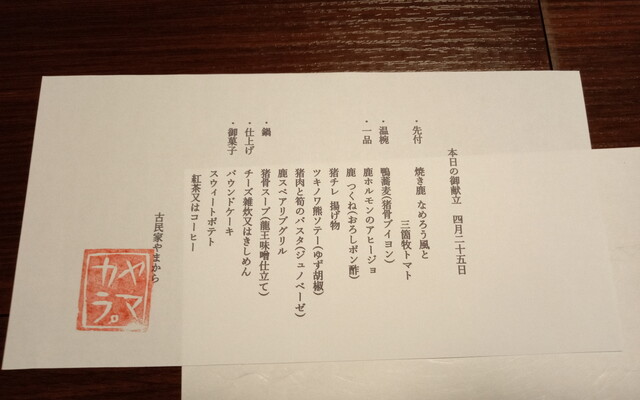 本日の御献立 四月二十五日
・先付 焼き鹿 なめろう風と
三箇牧トマト
・温椀 鴨蕎麦(猪骨ブイヨン)
・一品 鹿ホルモンのアヒージョ
鹿 つくね(おろしポン酢)
猪チレ 揚げ物
ツキノワ熊ソテー(ゆず胡椒)
猪肉と筍のパスタ(ジェノベーゼ)
鹿スペアリブグリル
・鍋 猪骨スープ(龍王味噌仕立て)
・仕上げ チーズ雑炊又はきしめん
・御菓子 パウンドケーキ
スウィートポテト
紅茶又はコーヒー
古民家やまから
ヤマ
カラ。